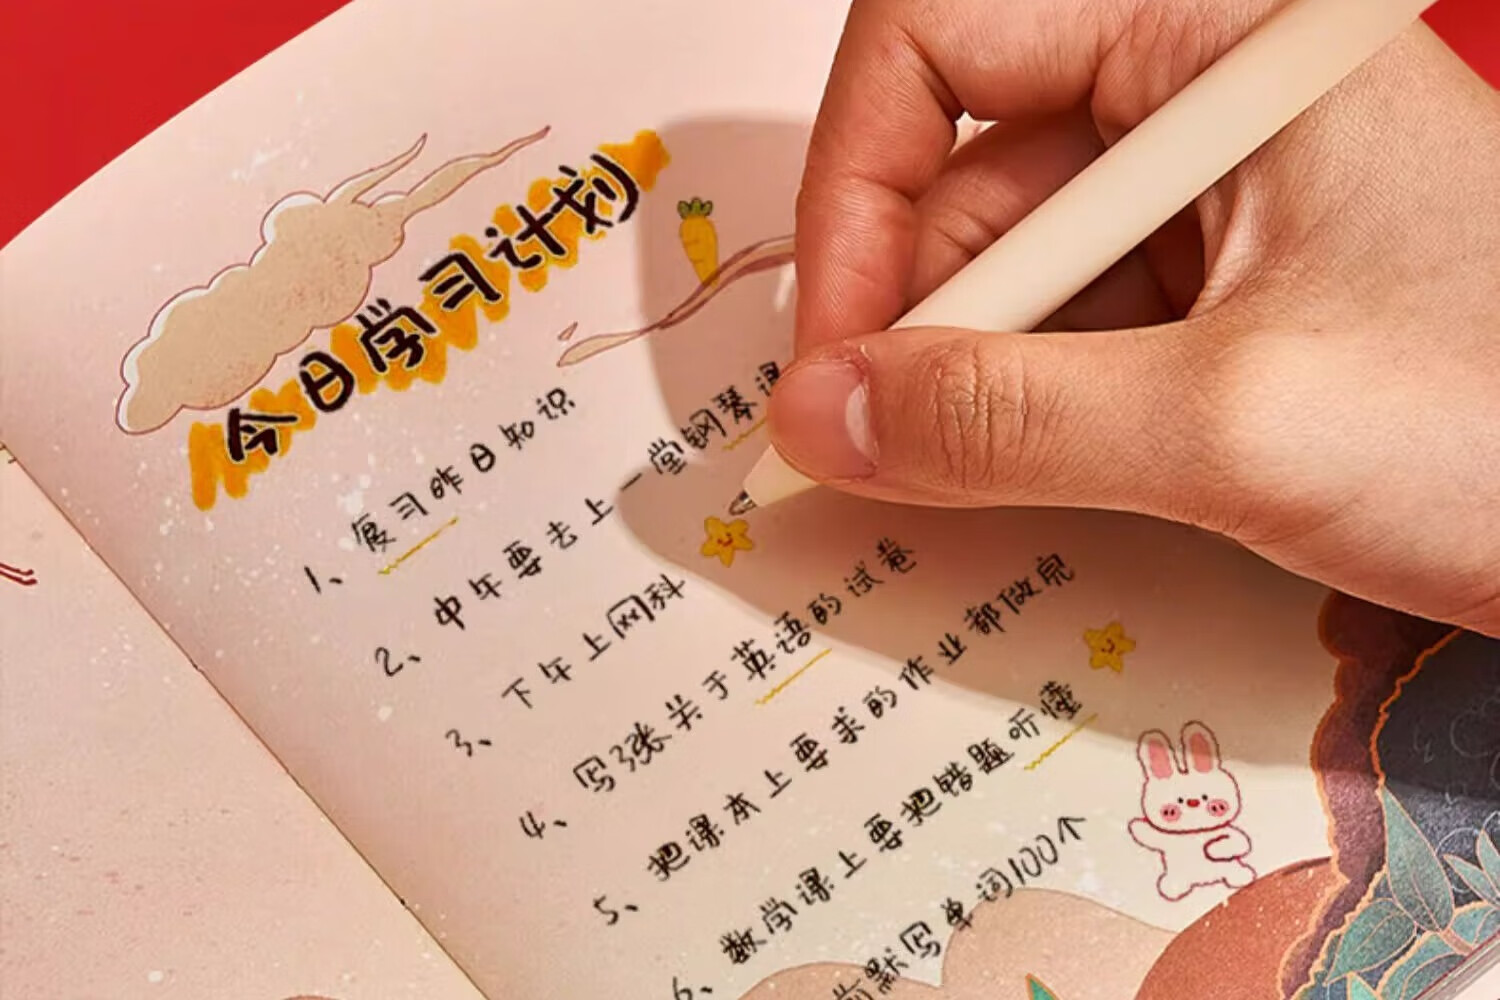 今日学习计划
1、复习昨日知识
2、中午要去上一堂钢琴课
3、下午上网科
4、写3张关于英语的试卷
5、把课本上要求的作业都做完
6、数学课上要把错题听懂
前默写单词100个